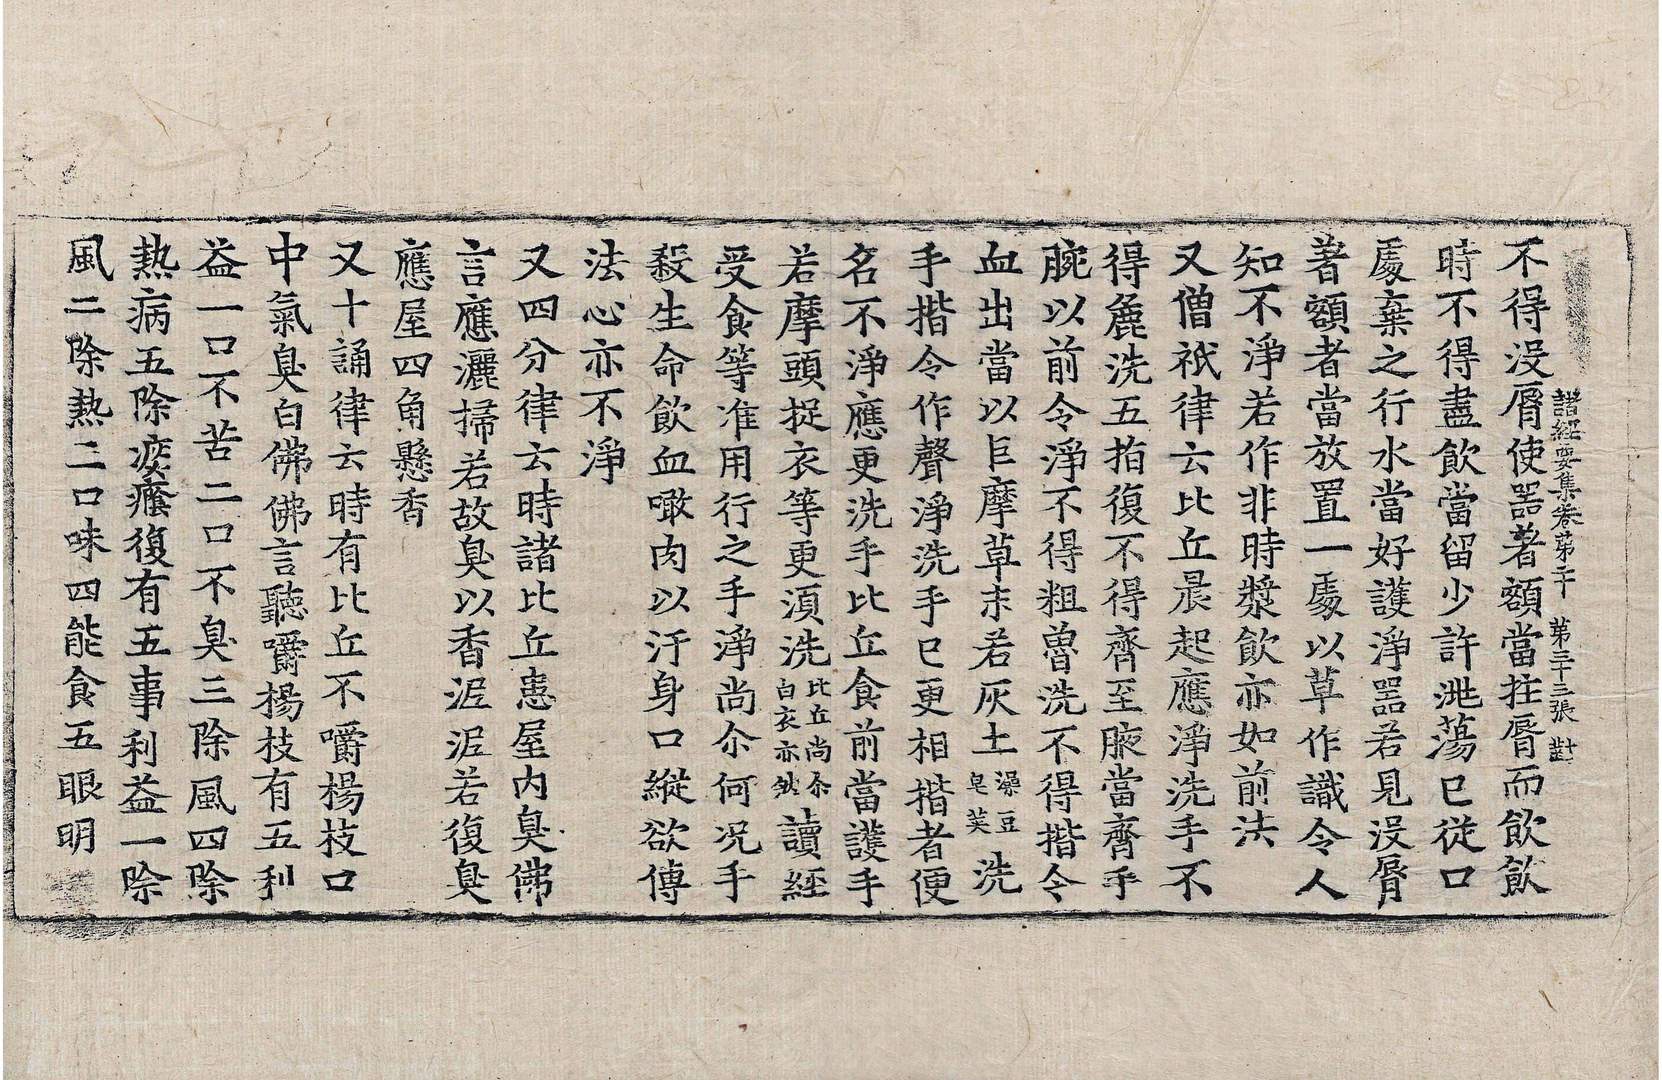 諸經要集卷第二十　第三十三張　對
不得沒脣使噐著額當拄脣而飮飮
時不得盡飮當留少許洮蕩已從口
處棄之行水當好護淨噐若見沒脣
著額者當放置一處以草作識令人
知不淨若作非時漿飮亦如前法
又僧祇律云比丘晨起應淨洗手不
得麁洗五指復不得齊至腋當齊手
腕以前令淨不得粗魯洗不得揩令
血出當以巨摩草末若灰土澡豆皂莢洗
手揩令作聲淨洗手已更相揩者便
名不淨應更洗手比丘食前當護手
若摩頭捉衣等更須洗比丘尚尒白衣亦然讀經
受食等准用行之手淨尚尒何况手
殺生命飮血噉肉以汙身口縱欲傳
法心亦不淨
又四分律云時諸比丘患屋內臭佛
言應灑掃若故臭以香泥泥若復臭
應屋四角懸香
又十誦律云時有比丘不嚼楊枝口
中氣臭白佛佛言聽嚼楊枝有五利
益一口不苦二口不臭三除風四除
熱病五除痰癊復有五事利益一除
風二除熱三口味四能食五眼明